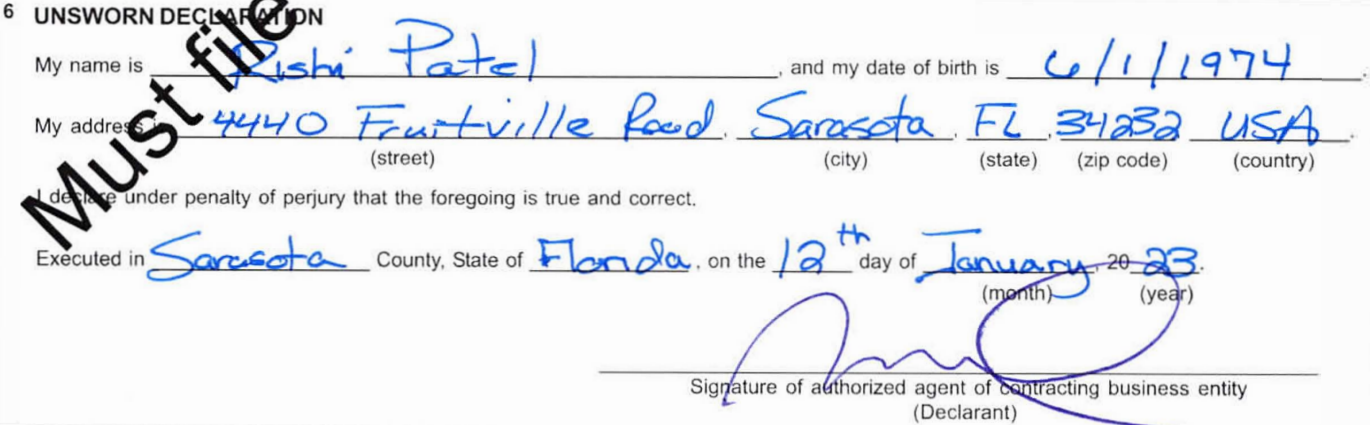 6 UNSWORN DECLARATION
My name is Rishi Patel, and my date of birth is 6/1/1974.
My address is 4440 Fruitville Road, Sarasota, FL, 34232, USA.
(street) (city) (state) (zip code) (country)
I declare under penalty of perjury that the foregoing is true and correct.
Executed in Sarasota County, State of Florida, on the 12th day of January, 20 23.
(month) (year)
Signature of authorized agent of contracting business entity
(Declarant)
Must file